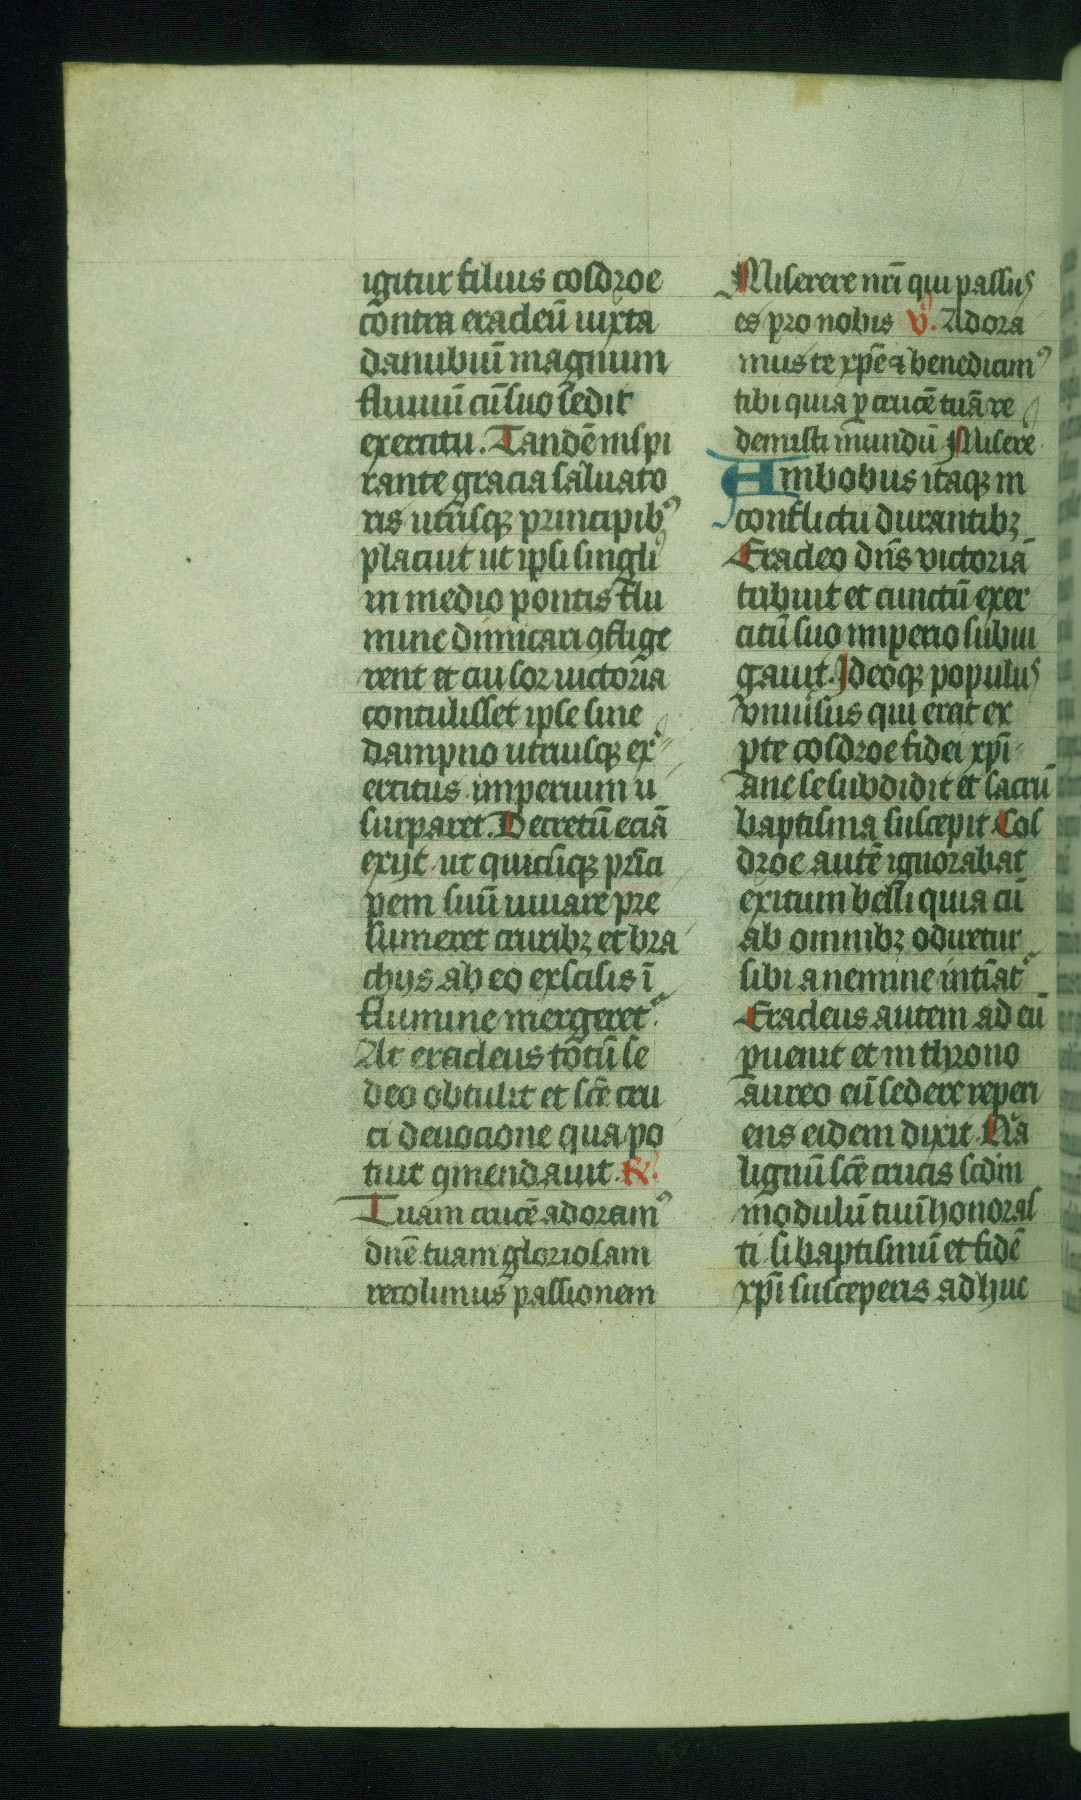 igitur filius cosdroe
cōtra eracleū iuxta
danubiū magnum
fluuiū cū suo sedit
exercitu. Tandē inspi
rante gracia saluato
ris utrīsqꝫ principibꝰ
placuit ut ipsi singli
in medio pontis flu
mine dimicari ꝯflige
rent et cui sor uictoria
contulisset ipse sine
dampno utriusqꝫ ex
ercitus imperium u
surparet. Decretū eciā
exijt ut quicūqꝫ prīci
pem suū iuuare pre
sumeret cruribꝫ et bra
chijs ab eo exscisis ī
flumine mergeret᷑.
At eracleus totū se
deo obtulit et scē cru
ci deuocione qua po
tuit ꝯmendauit. R̄.
Tuam crucē adoramꝰ
dnē tuam gloriosam
recolimus passionem
Miserere nrī qui passus
es pro nobis v̄. Adora
mus te xp̄e ⁊ benedicimꝰ
tibi quia ꝑ crucē tuā re
demisti mundū Misere
Ambobus itaqꝫ in
conflictu durantibꝫ
Eracleo dn̄s victoriā
tribuit et cunctū exer
citū suo imperio subiu
gauit. Ideoqꝫ populus
vniuisus qui erat ex
ꝑte cosdroe fidei xpī
ane se subdidit et sacrū
baptisma suscepit Cos
droe autē ignorabat
exitum belli quia cū
ab omnibꝫ odiretur
sibi a nemine intīat᷑
Eracleus autem ad eū
ꝑuenit et in throno
aureo eū sedere reperi
ens eidem dixit Q̄a
lignū scē crucis scdm
modulū tuū honoras
ti si baptismū et fidē
xpī susceperis adhuc